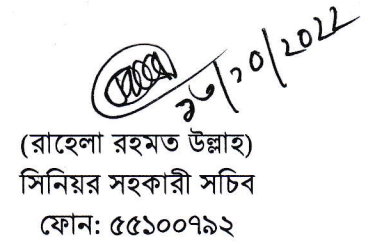 ২৩/১০/২০২২
(রাহেলা রহমত উল্লাহ)
সিনিয়র সহকারী সচিব
ফোন: ৫৫১০০৭৯২